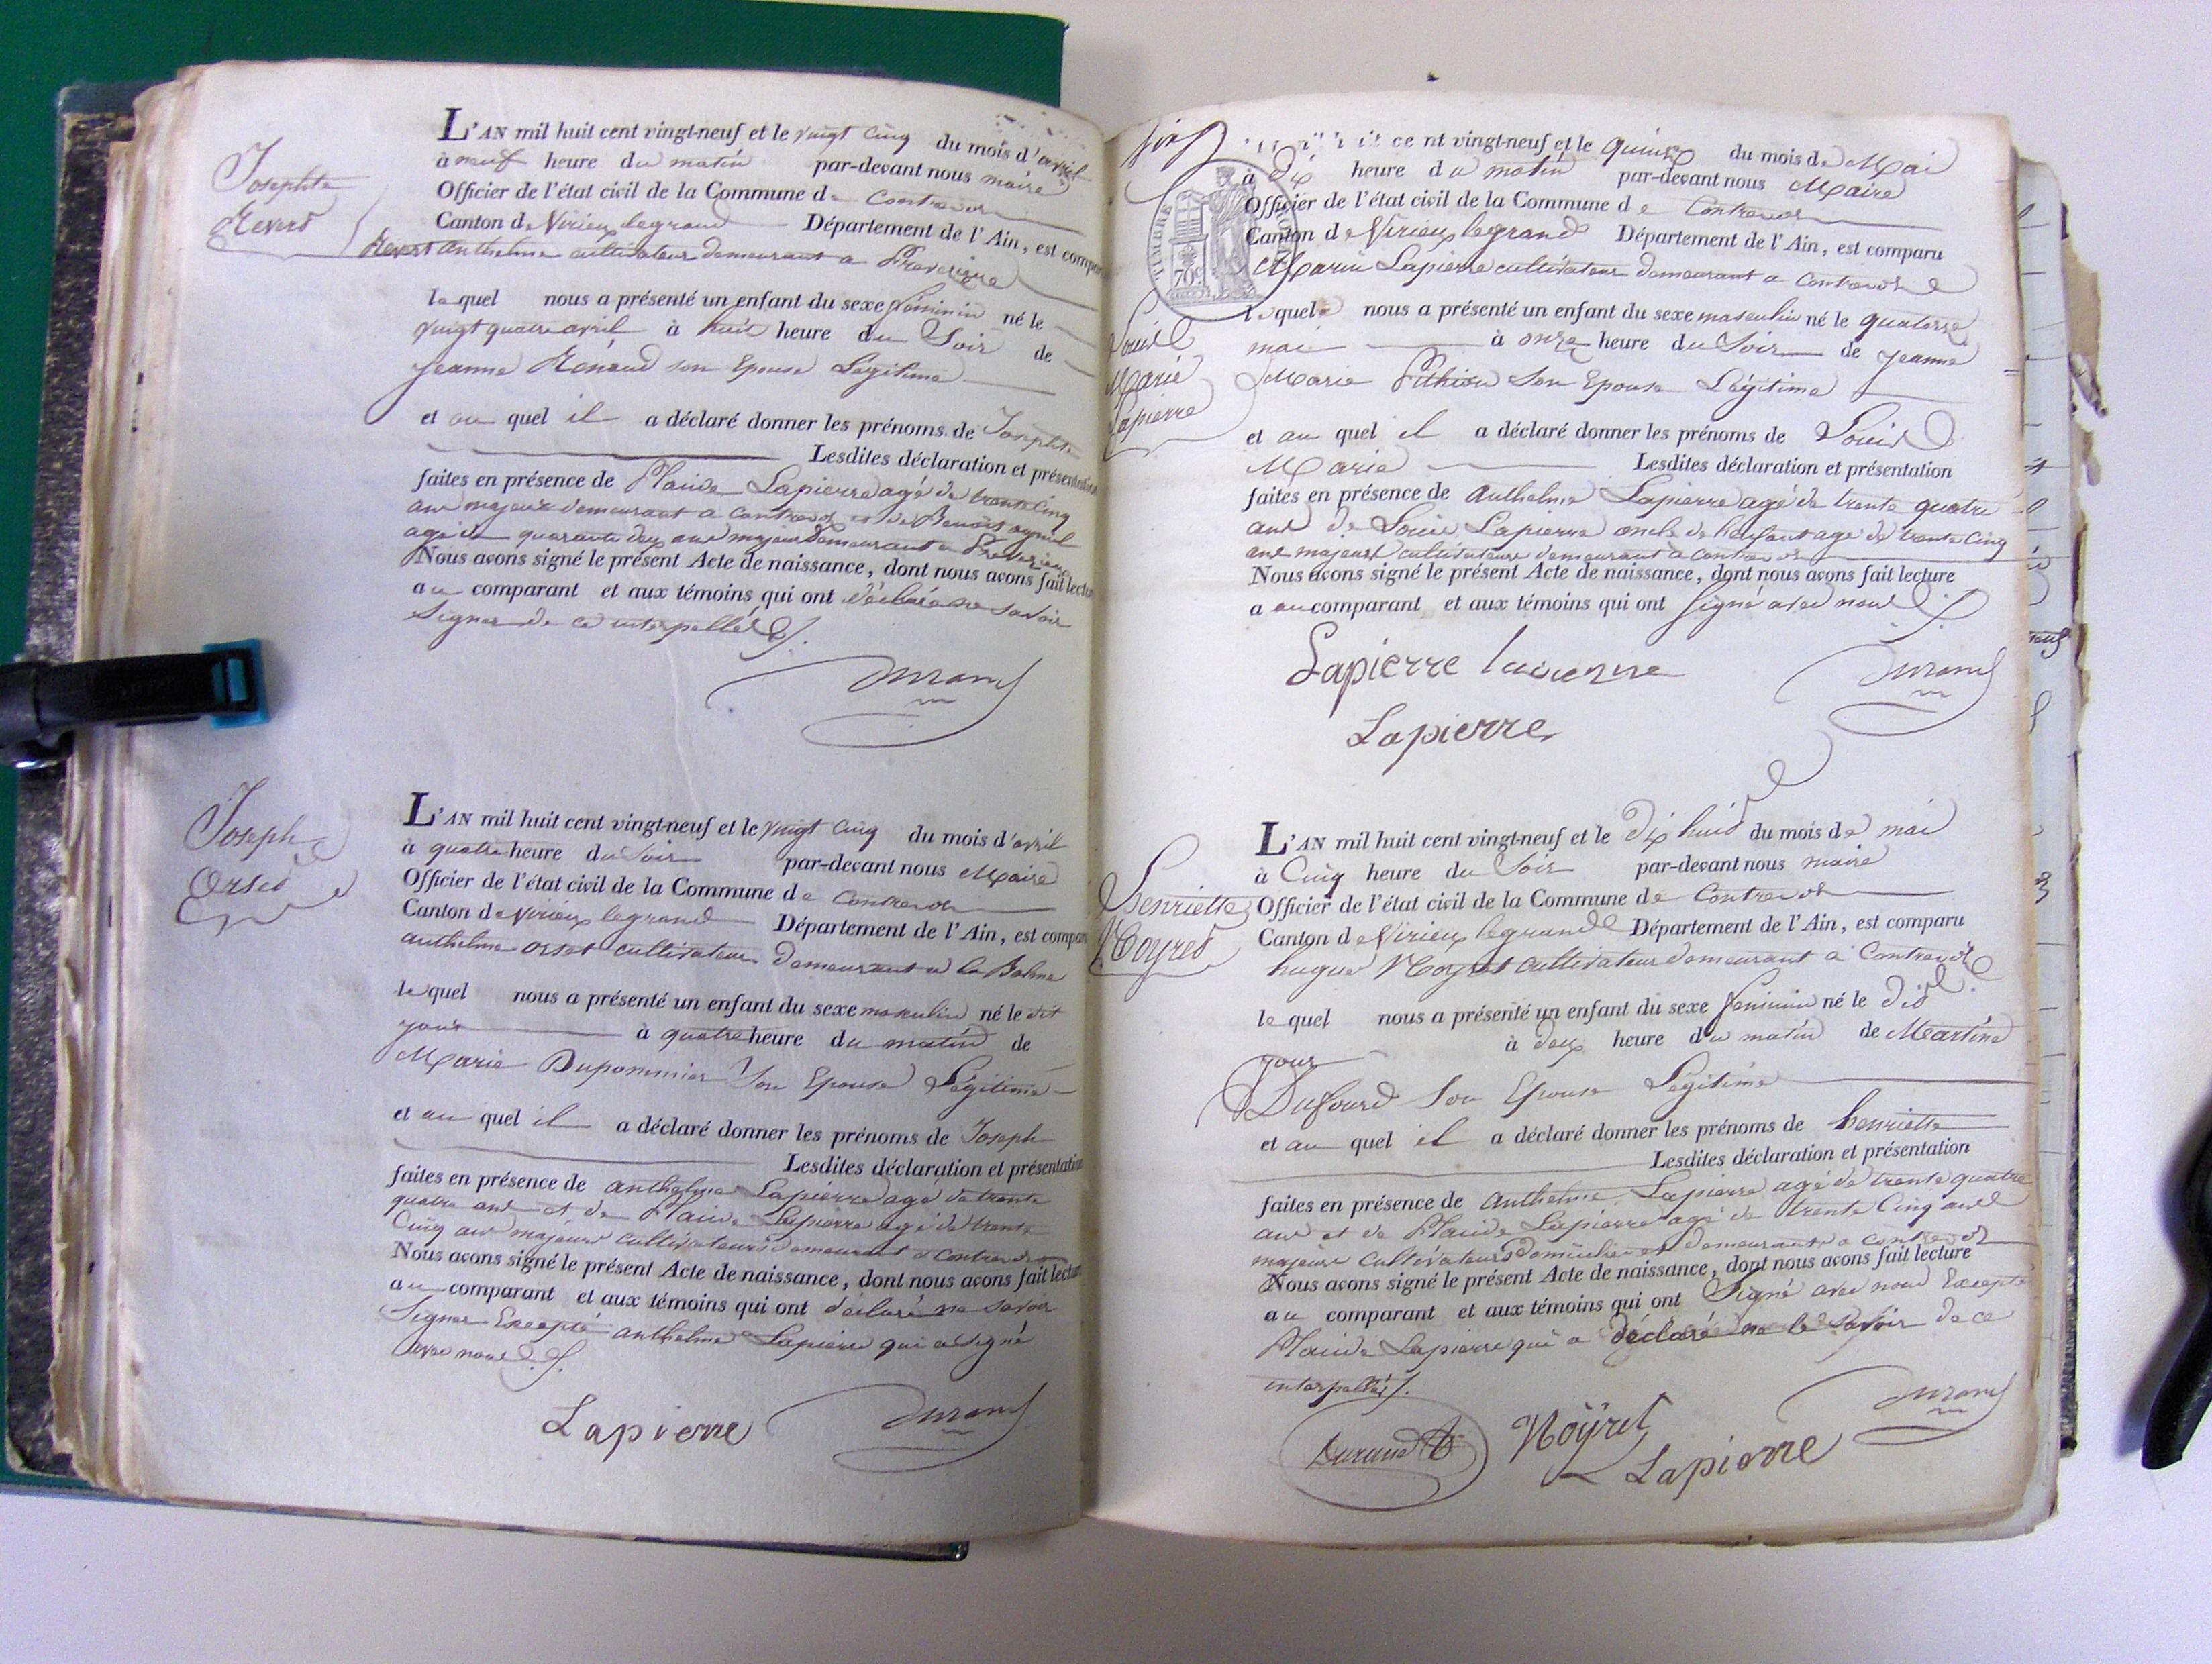 Josephte
Revert
L'AN mil huit cent vingt-neuf et le vingt cinq du mois d'avril
à neuf heure du matin par-devant nous maire
Officier de l'état civil de la Commune de Contrevoz
Canton de Virieux legrand Département de l'Ain, est compa
Revert anthelme cultivateur demeurant a
lequel nous a présenté un enfant du sexe féminin né le
vingt quatre avril à huit heure du Soir de
Jeanne Renaud son Epouse Légitime
et au quel il a déclaré donner les prénoms de Josephte
Lesdites déclaration et présentation
faites en présence de Placide Lapierre agé de trente cinq
ans majeur demeurant a Contrevoz et de Benoit
agé de quarante deux ans majeur demeurant a
Nous avons signé le présent Acte de naissance, dont nous avons fait lectur
au comparant et aux témoins qui ont déclaré ne savoir
Signer de ce interpellés
Durand
Joseph
Orset
L'AN mil huit cent vingt-neuf et le vingt cinq du mois d'avril
à quatre heure du Soir par-devant nous Maire
Officier de l'état civil de la Commune de Contrevoz
Canton de Virieux legrand Département de l'Ain, est compar
anthelme orset cultivateur demeurant a la Balme
lequel nous a présenté un enfant du sexe masculin né le dit
jour à quatre heure du matin de
Marie Dupommier Son Epouse Légitime
et au quel il a déclaré donner les prénoms de Joseph
Lesdites déclaration et présentation
faites en présence de anthelme Lapierre agé de trente
quatre ans et de Placide Lapierre agé de trente
Cinq ans majeurs cultivateurs demeurant a Contrevoz
Nous avons signé le présent Acte de naissance, dont nous avons fait lectur
au comparant et aux témoins qui ont déclaré ne savoir
Signer Excepté anthelme Lapierre qui a signé
avec nous
Lapierre Durand
cent vingt-neuf et le quinze du mois de Mai
à Dix heure du matin par-devant nous Maire
Officier de l'état civil de la Commune de Contrevoz
Canton de Virieux legrand Département de l'Ain, est comparu
TIMBRE
70c
Marin Lapierre cultivateur demeurant a Contrevoz
lequel nous a présenté un enfant du sexe masculin né le quatorze
mai à onze heure du Soir de Jeanne
Marie Pithion Son Epouse Légitime
Louis
Marie
Lapierre
et au quel il a déclaré donner les prénoms de Louis
Marie Lesdites déclaration et présentation
faites en présence de anthelme Lapierre agé de trente quatre
ans de Louis Lapierre oncle de l'enfant agé de trente cinq
ans majeurs cultivateurs demeurant a Contrevoz
Nous avons signé le présent Acte de naissance, dont nous avons fait lecture
a au comparant et aux témoins qui ont signé avec nous
Lapierre
Durand
Lapierre
Henriette
Noyret
L'AN mil huit cent vingt-neuf et le Dix huit du mois de mai
à Cinq heure du Soir par-devant nous maire
Officier de l'état civil de la Commune de Contrevoz
Canton de Virieux legrand Département de l'Ain, est comparu
hugue Noyret cultivateur demeurant à Contrevoz
lequel nous a présenté un enfant du sexe féminin né le dit
jour à deux heure du matin de Martine
Dufourd Son Epouse Légitime
et au quel il a déclaré donner les prénoms de henriette
Lesdites déclaration et présentation
faites en présence de anthelme Lapierre agé de trente quatre
ans et de Placide Lapierre agé de trente Cinq ans
majeurs cultivateurs domiciliés et demeurant a Contrevoz
Nous avons signé le présent Acte de naissance, dont nous avons fait lecture
au comparant et aux témoins qui ont Signé avec nous Excepté
Placide Lapierre qui a déclaré ne le Savoir de ce
interpellés
Durand Noÿret Durand
Lapierre